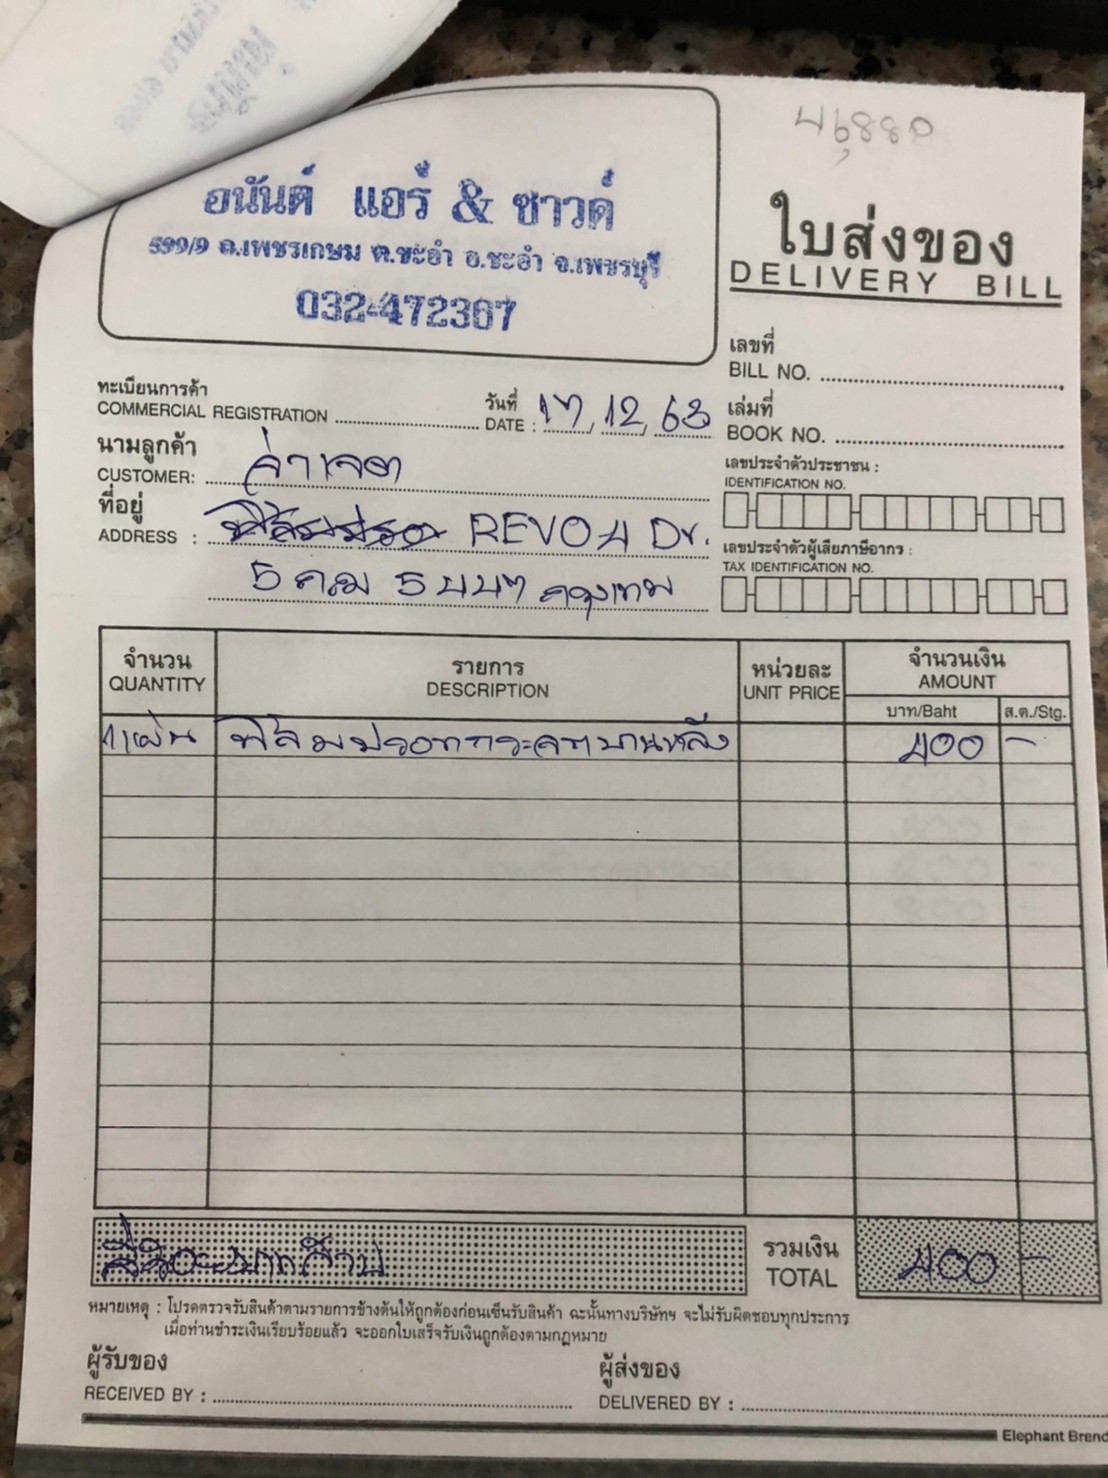 46,880
อนันต์ แอร์ & ซาวด์
599/9 ถ.เพชรเกษม ต.ชะอำ อ.ชะอำ จ.เพชรบุรี
032-472367
ใบส่งของ
DELIVERY BILL
เลขที่
BILL NO.
ทะเบียนการค้า
COMMERCIAL REGISTRATION
วันที่
DATE : 17, 12, 63
เล่มที่
BOOK NO.
นามลูกค้า
CUSTOMER:
เลขประจำตัวประชาชน :
IDENTIFICATION NO.
ที่อยู่
ADDRESS : REVO 4 Dr.
เลขประจำตัวผู้เสียภาษีอากร :
TAX IDENTIFICATION NO.
กรุงเทพ
จำนวน
QUANTITY
รายการ
DESCRIPTION
หน่วยละ
UNIT PRICE
จำนวนเงิน
AMOUNT
บาท/Baht
ส.ต./Stg.
1 แผ่น ฟิล์มปรอทกระจกบานหลัง 400 -
สี่ร้อยบาทถ้วน
รวมเงิน
TOTAL
400 -
หมายเหตุ : โปรดตรวจรับสินค้าตามรายการข้างต้นให้ถูกต้องก่อนเซ็นรับสินค้า ฉะนั้นทางบริษัทฯ จะไม่รับผิดชอบทุกประการ
เมื่อท่านชำระเงินเรียบร้อยแล้ว จะออกใบเสร็จรับเงินถูกต้องตามกฎหมาย
ผู้รับของ
RECEIVED BY :
ผู้ส่งของ
DELIVERED BY :
Elephant Brand